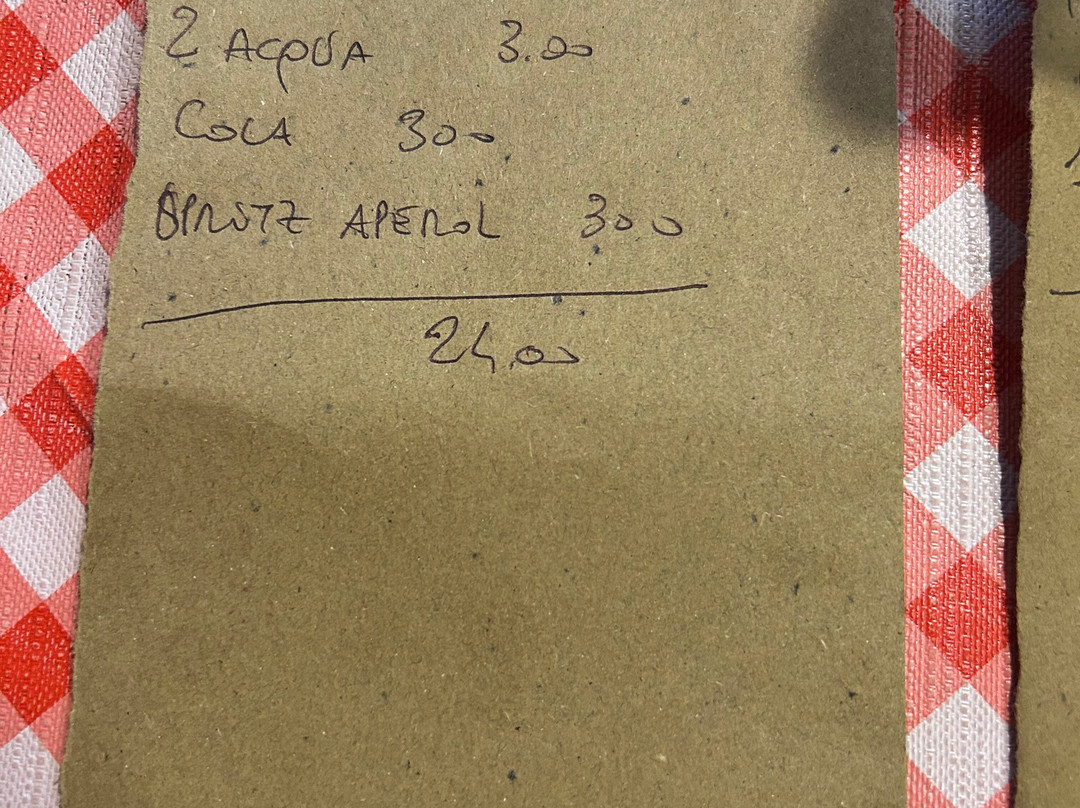 2 ACQUA 3.00
COCA 300
SPRITZ APEROL 300
24,00